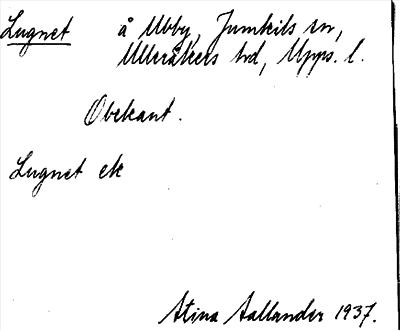 Lugnet å Ubby, Jumkils sn,
Ulleråkers hd, Upps. l.
Obekant.
Lugnet ek
Stina Aallander 1937.